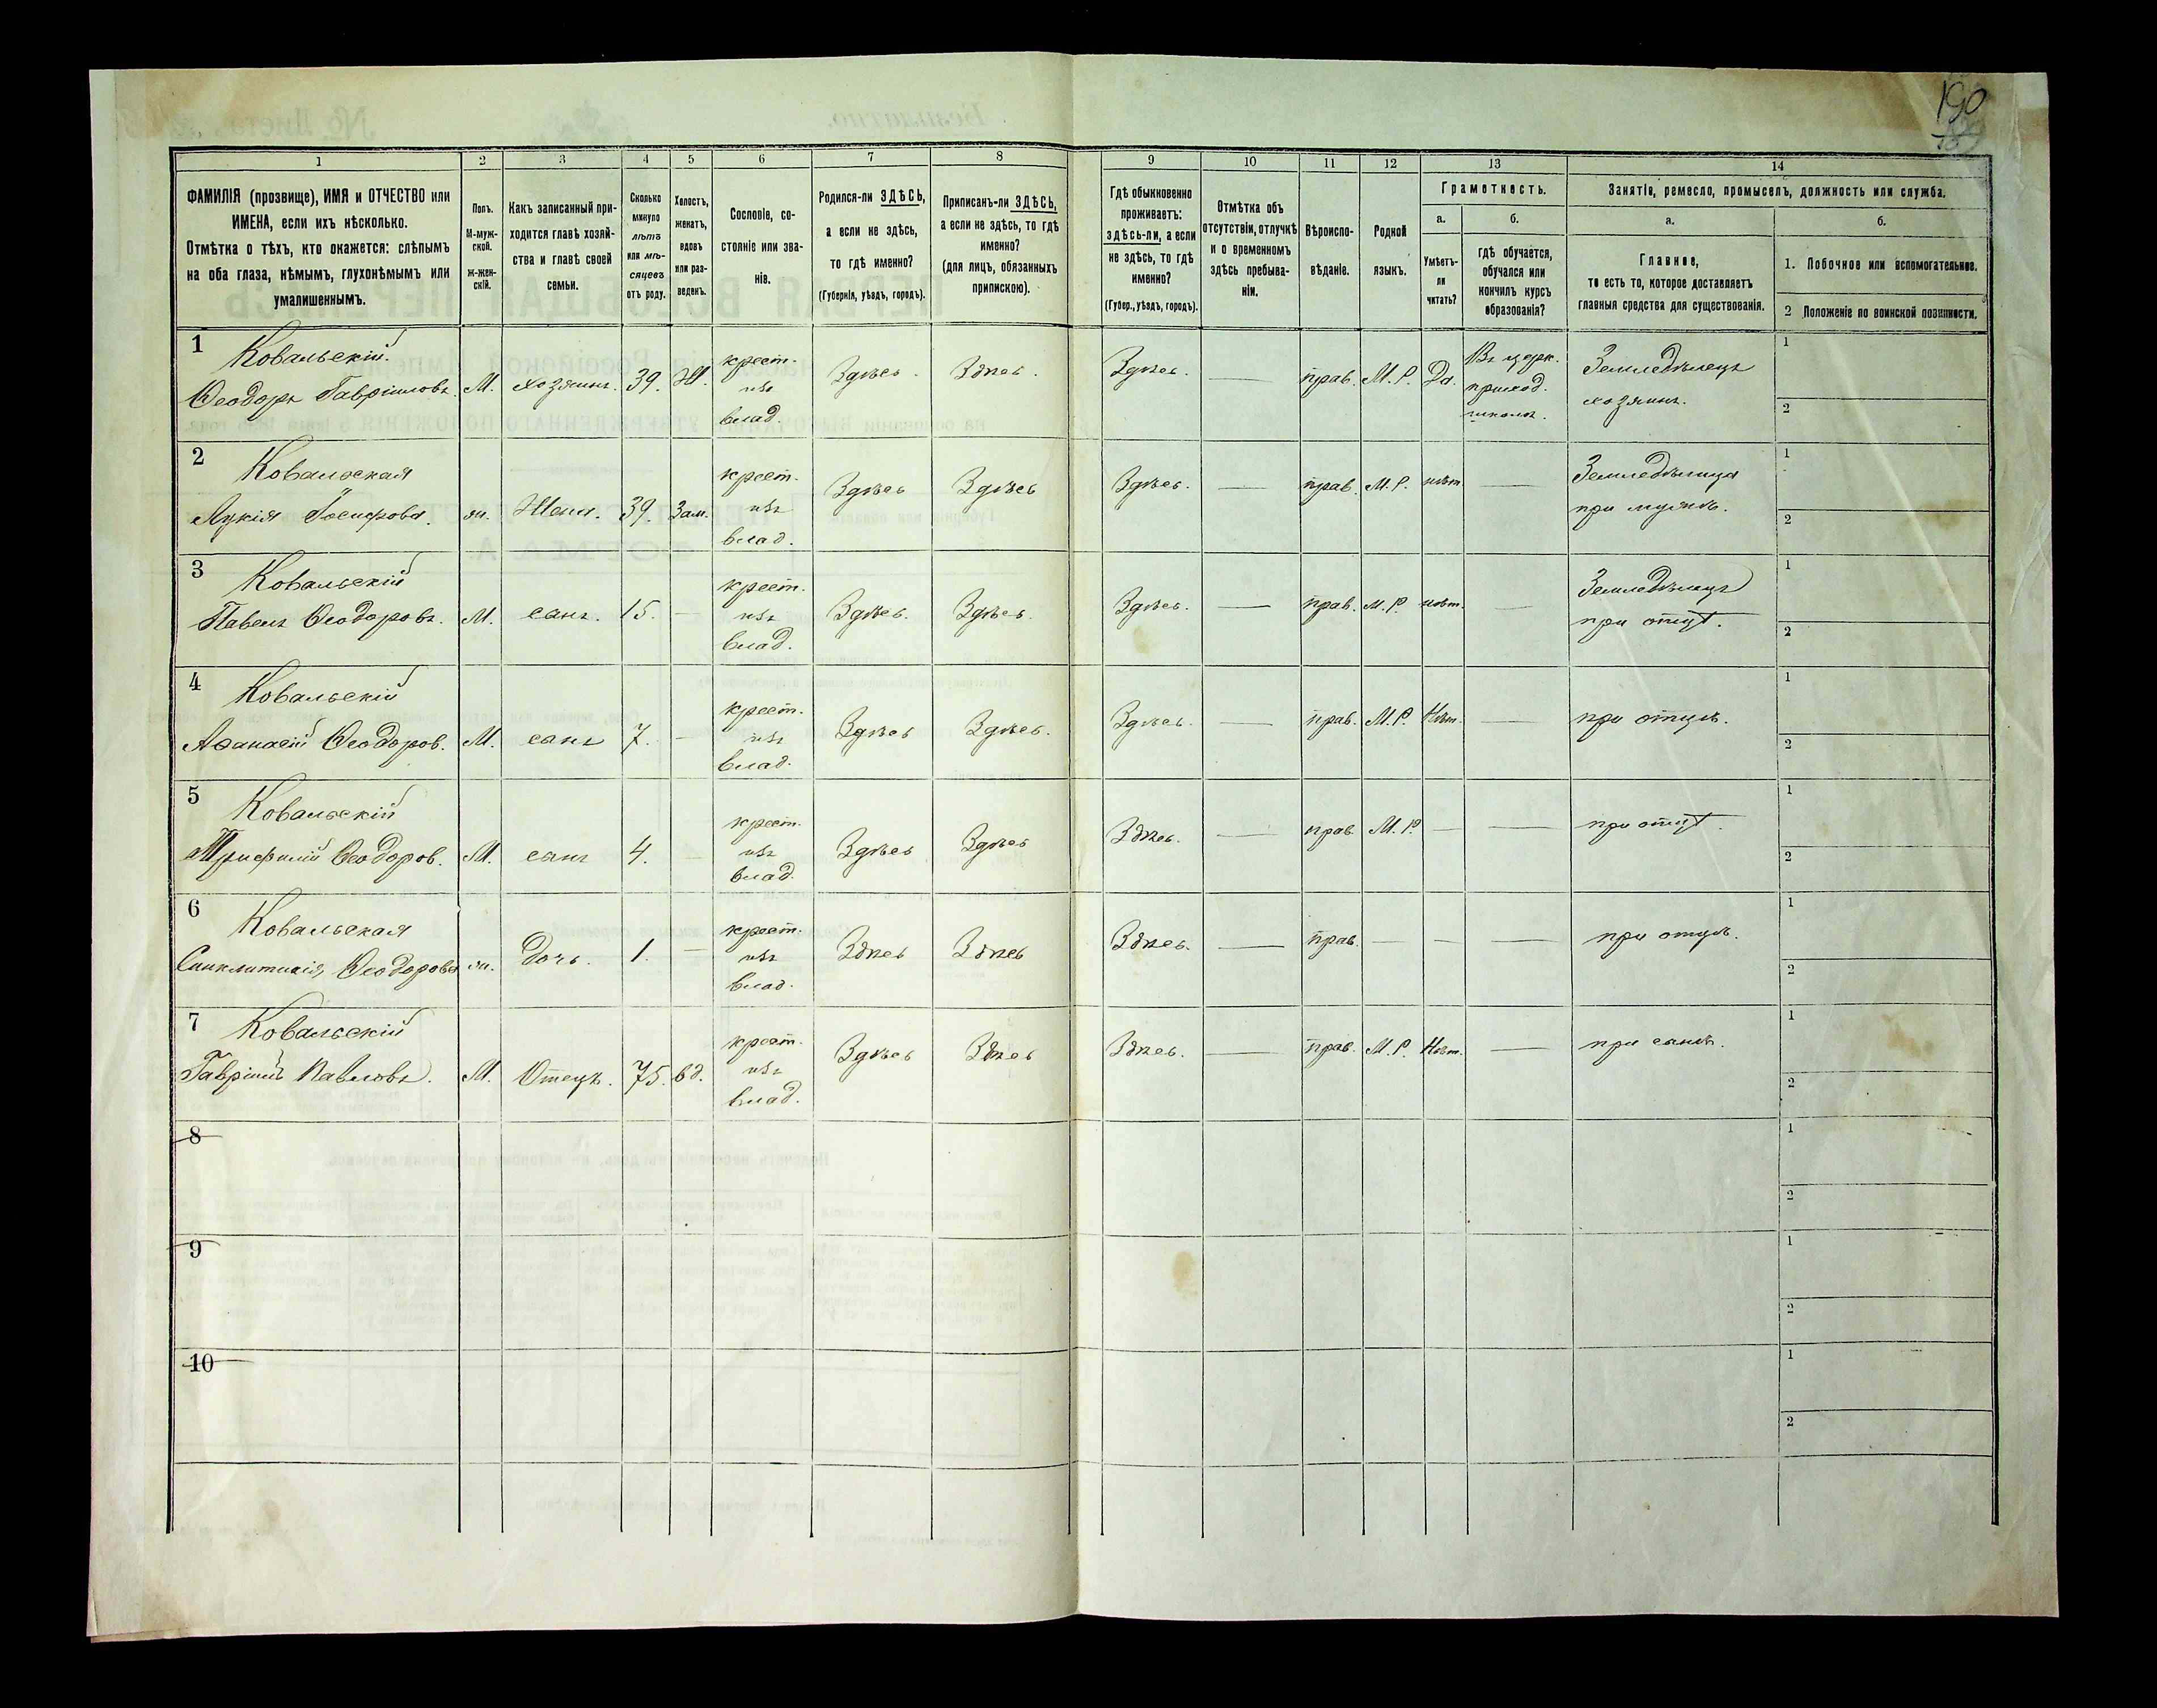 190
1 2 3 4 5 6 7 8 9 10 11 12 13 14
ФАМИЛІЯ (прозвище), ИМЯ и ОТЧЕСТВО или
ИМЕНА, если ихъ нѣсколько.
Отмѣтка о тѣхъ, кто окажется: слѣпымъ
на оба глаза, нѣмымъ, глухонѣмымъ или
умалишеннымъ.
Полъ.
М-муж-
ской.
Ж-жен-
скій.
Какъ записанный при-
ходится главѣ хозяй-
ства и главѣ своей
семьи.
Сколько
минуло
лѣтъ
или мѣ-
сяцевъ
отъ роду.
Холостъ,
женатъ,
вдовъ
или раз-
веденъ.
Сословіе, со-
стояніе или зва-
ніе.
Родился-ли ЗДѢСЬ,
а если не здѣсь,
то гдѣ именно?
(Губернія, уѣздъ, городъ).
Приписанъ-ли ЗДѢСЬ,
а если не здѣсь, то гдѣ
именно?
(для лицъ, обязанныхъ
припискою).
Гдѣ обыкновенно
проживаетъ:
здѣсь-ли, а если
не здѣсь, то гдѣ
именно?
(Губер., уѣздъ, городъ).
Отмѣтка объ
отсутствіи, отлучкѣ
и о временномъ
здѣсь пребыва-
ніи.
Вѣроиспо-
вѣданіе.
Родной
языкъ.
Грамотность.
а.
Умѣетъ-
ли
читать?
б.
гдѣ обучается,
обучался или
кончилъ курсъ
образованія?
Занятіе, ремесло, промыселъ, должность или служба.
а.
Главное,
то есть то, которое доставляетъ
главныя средства для существованія.
б.
1. Побочное или вспомогательное.
2 Положеніе по воинской повинности.
1
Ковальскій
Ѳеодоръ Гавріиловъ.
М.
хозяинъ.
39.
Ж.
крест.
изъ
влад.
Здѣсь.
Здѣсь.
Здѣсь.
—
прав.
М.Р.
Да.
Въ церк.
приход.
школѣ.
Земледѣлецъ
хозяинъ.
1
2
2
Ковальская
Лукія Іосифова.
ж.
Жена.
39.
Зам.
крест.
изъ
влад.
Здѣсь
Здѣсь
Здѣсь.
—
прав.
М.Р.
нѣт.
—
Земледѣлица
при мужѣ.
1
2
3
Ковальскій
Павелъ Ѳеодоровъ.
М.
сынъ.
15.
—
крест.
изъ
влад.
Здѣсь.
Здѣсь.
Здѣсь.
—
прав.
М.Р.
нѣт.
—
Земледѣлецъ
при отцѣ.
1
2
4
Ковальскій
Аѳанасій Ѳеодоров.
М.
сынъ
7.
—
крест.
изъ
влад.
Здѣсь
Здѣсь.
Здѣсь.
—
прав.
М.Р.
Нѣт.
—
при отцѣ.
1
2
5
Ковальскій
Трифилій Ѳеодоров.
М.
сынъ
4.
—
крест.
изъ
влад.
Здѣсь
Здѣсь
Здѣсь.
—
прав.
М.Р.
—
—
при отцѣ.
1
2
6
Ковальская
Синклитикія Ѳеодорова
ж.
дочь.
1.
—
крест.
изъ
влад.
Здѣсь
Здѣсь
Здѣсь.
—
прав.
—
—
—
при отцѣ.
1
2
7
Ковальскій
Гавріилъ Павловъ.
М.
Отецъ.
75.
вд.
крест.
изъ
влад.
Здѣсь
Здѣсь
Здѣсь.
—
прав.
М.Р.
Нѣт.
—
при сынѣ.
1
2
8
1
2
9
1
2
10
1
2